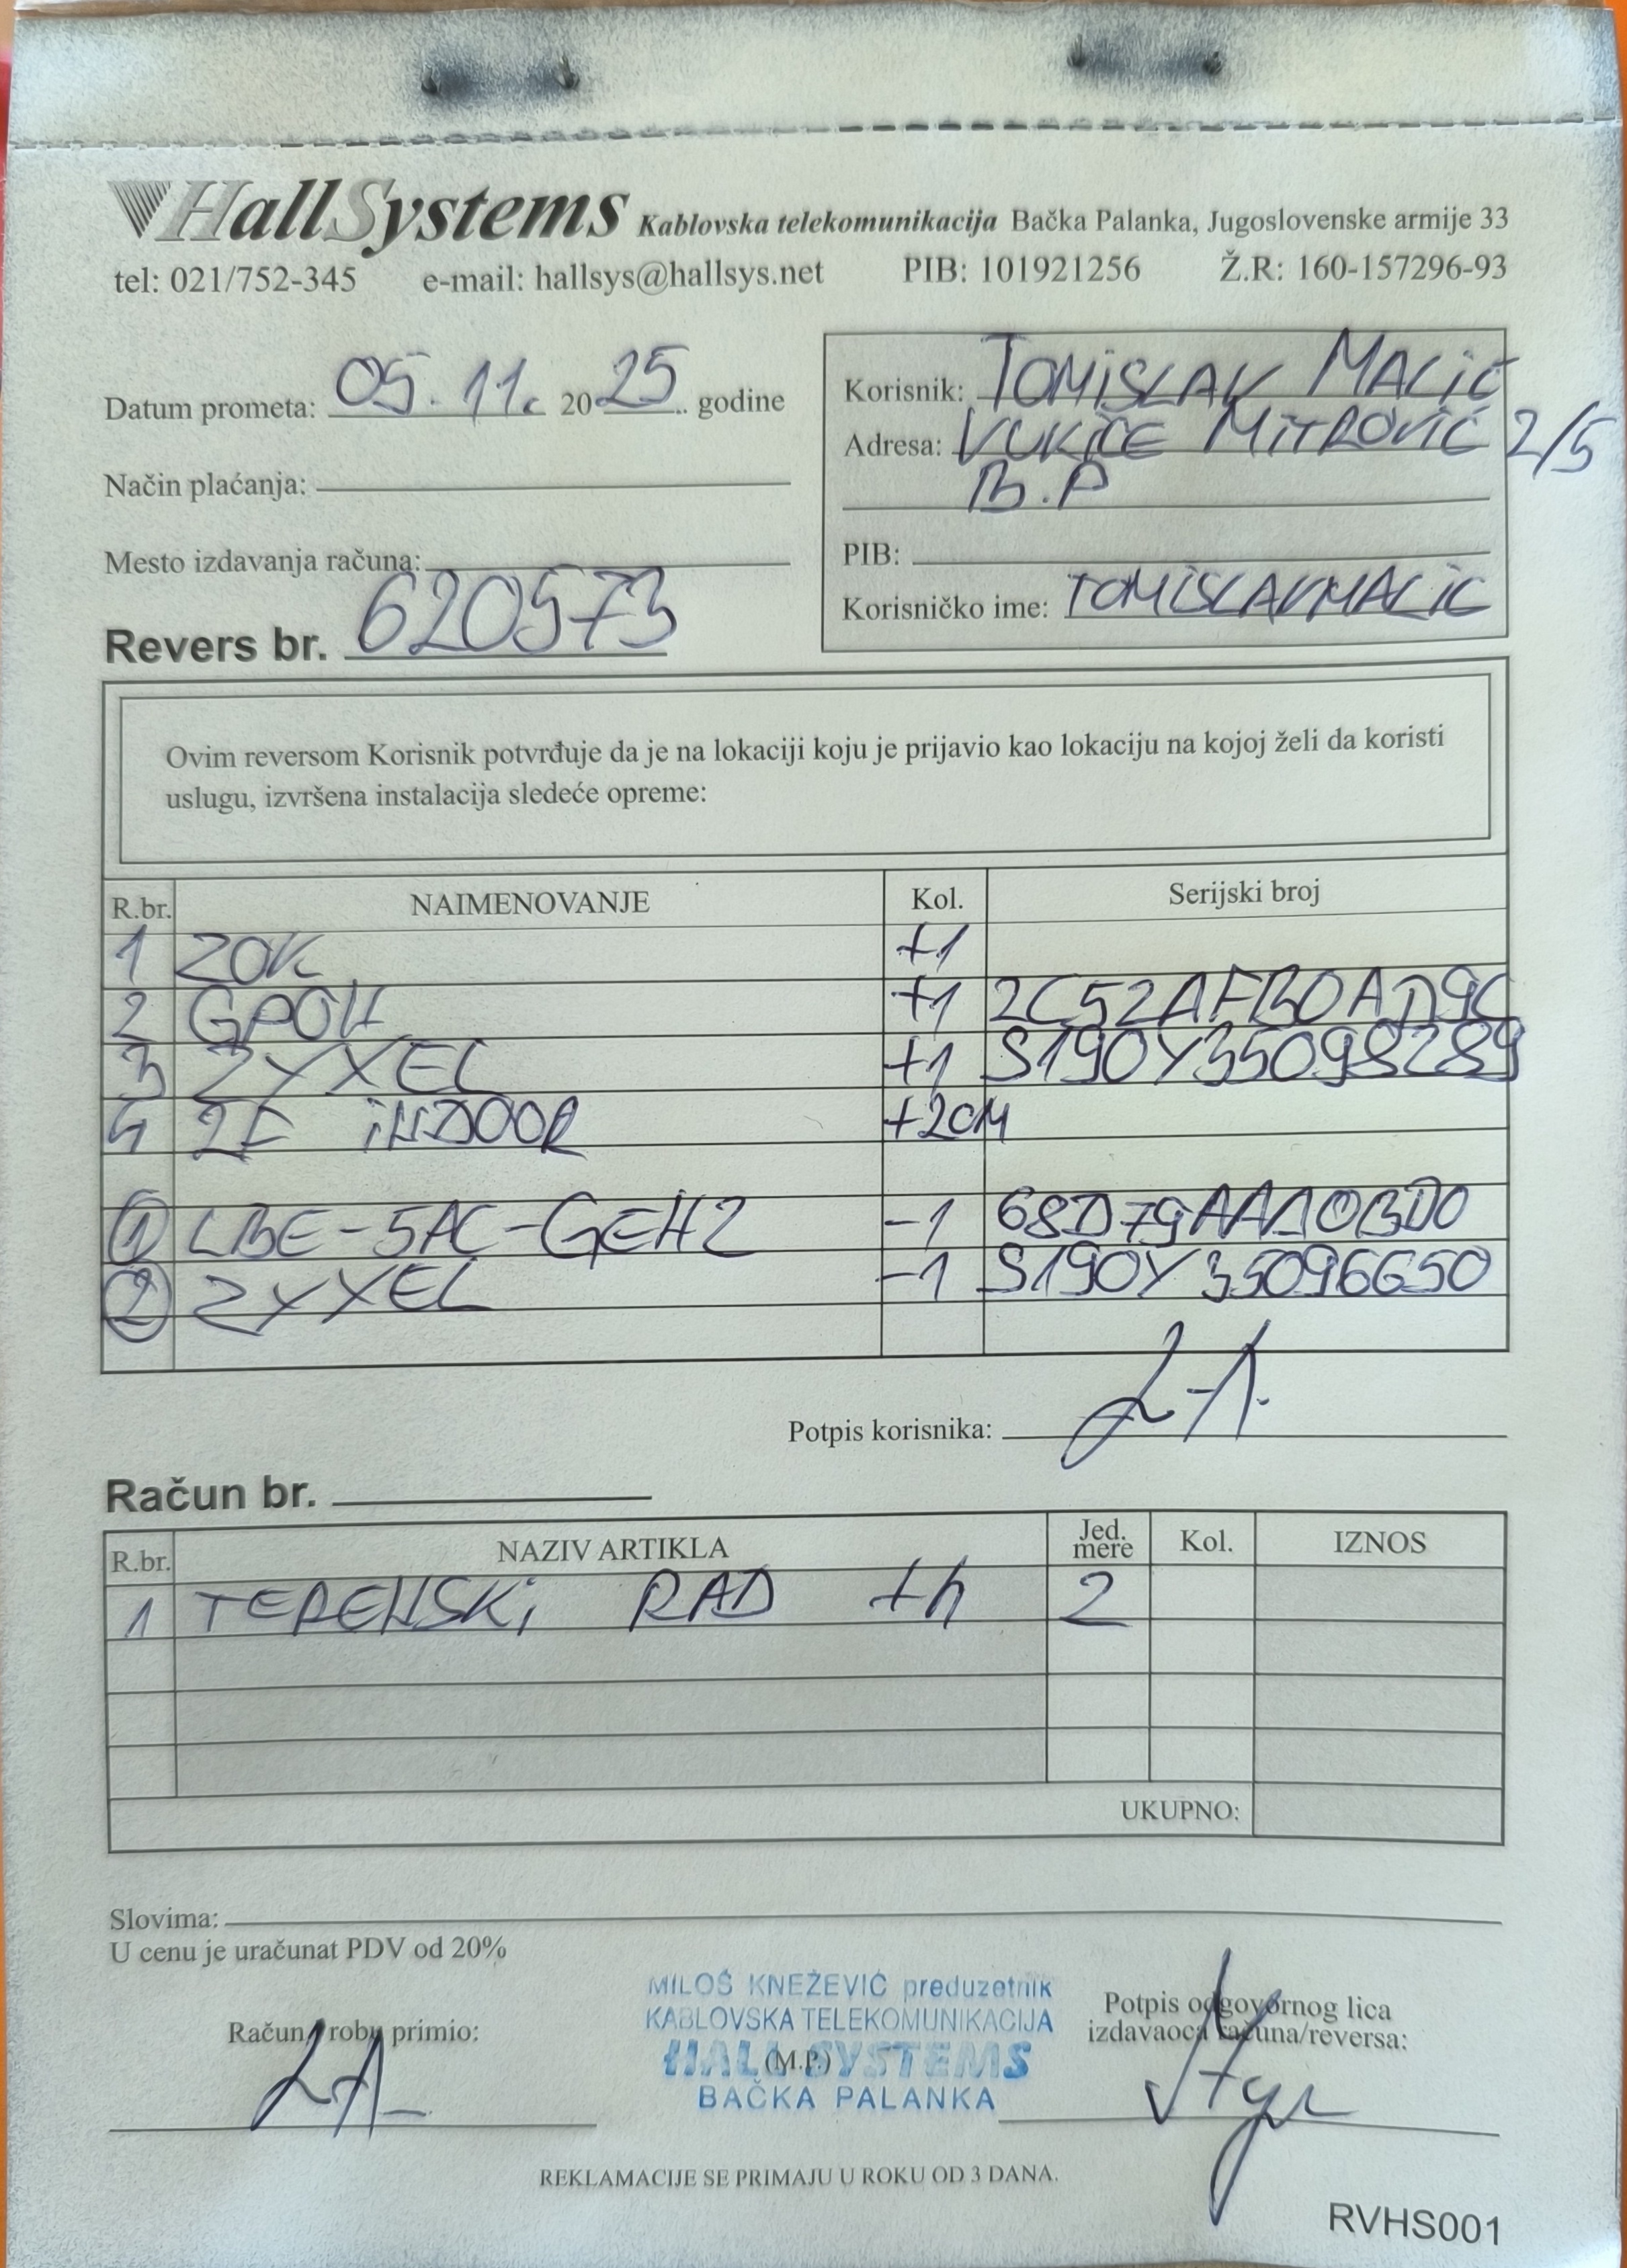 HallSystems Kablovska telekomunikacija Bačka Palanka, Jugoslovenske armije 33
tel: 021/752-345 e-mail: hallsys@hallsys.net PIB: 101921256 Ž.R: 160-157296-93
Datum prometa: 05.11. 2025. godine
Način plaćanja:
Mesto izdavanja računa:
Revers br. 620573
Korisnik: TOMISLAV MALIĆ
Adresa: VUKICE MITROVIĆ 2/5
B.P
PIB:
Korisničko ime: TOMISLAVMALIC
Ovim reversom Korisnik potvrđuje da je na lokaciji koju je prijavio kao lokaciju na kojoj želi da koristi
uslugu, izvršena instalacija sledeće opreme:
R.br. NAIMENOVANJE Kol. Serijski broj
1 ZOK +1
2 GPON +1 2C52AFB0AD9C
3 ZYXEL +1 S190Y35098289
4 2F INDOOR +20M
1 LBE-5AC-GEN2 -1 68D79AA10BD0
2 ZYXEL -1 S190Y35096650
Potpis korisnika:
Račun br.
R.br. NAZIV ARTIKLA Jed. mere Kol. IZNOS
1 TERENSKI RAD +h 2
UKUPNO:
Slovima:
U cenu je uračunat PDV od 20%
Račun / robu primio:
MILOŠ KNEŽEVIĆ preduzetnik
KABLOVSKA TELEKOMUNIKACIJA
HALL SYSTEMS
(M.P.)
BAČKA PALANKA
Potpis odgovornog lica
izdavaoca računa/reversa:
REKLAMACIJE SE PRIMAJU U ROKU OD 3 DANA.
RVHS001